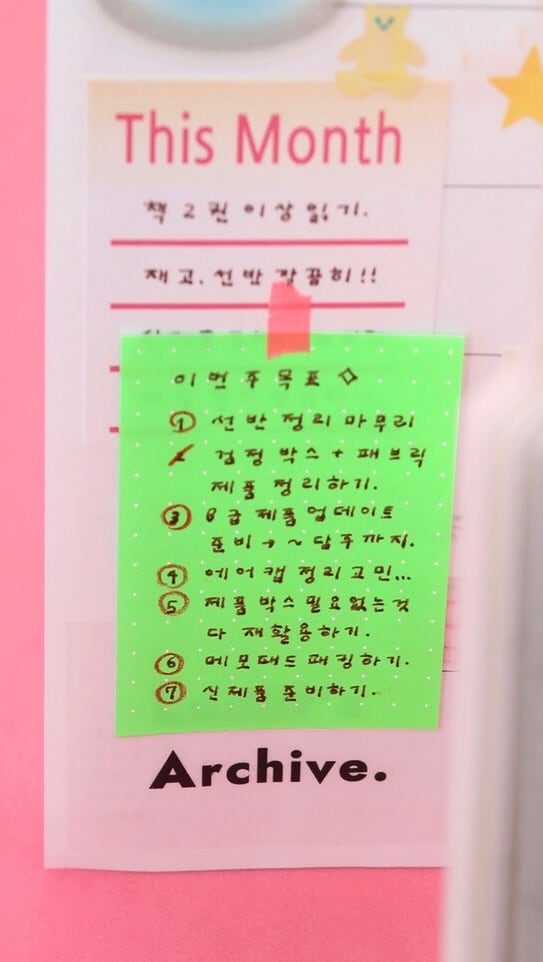 This Month
책 2권 이상 읽기.
재고, 선반 깔끔히!!
이번주목표
① 선반정리 마무리
검정박스 + 패브릭
제품 정리하기.
③ B급제품업데이트
준비 → ~담주까지.
④ 에어캡정리고민...
⑤ 제품박스필요없는것
다 재활용하기.
⑥ 메모패드패킹하기.
⑦ 신제품준비하기.
Archive.